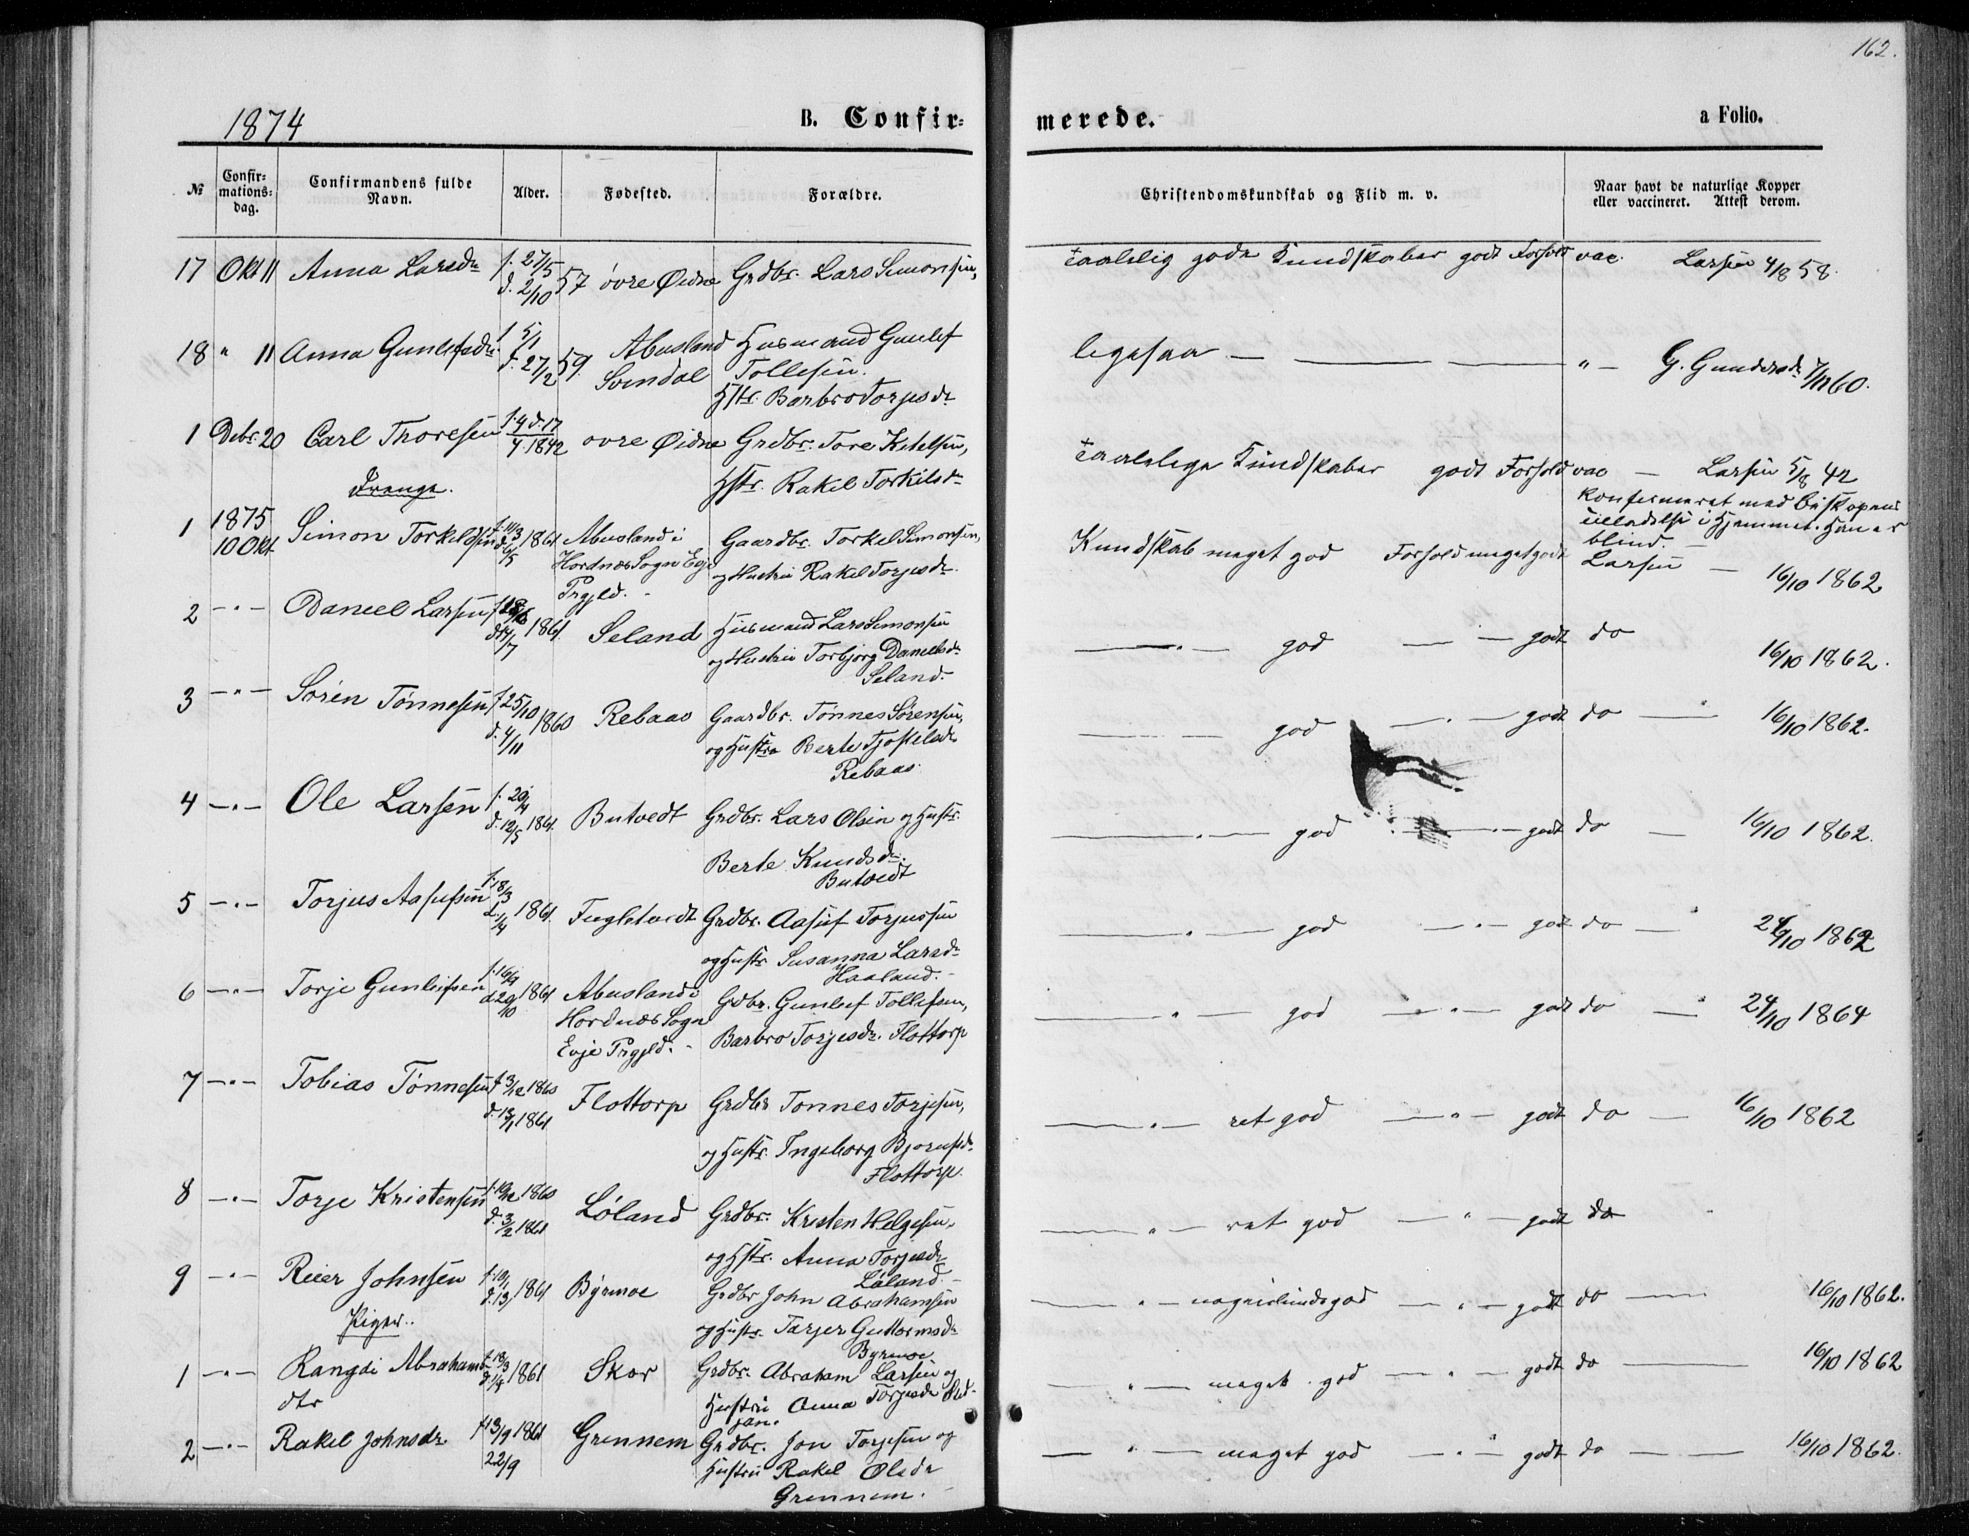 162.
1874
B. Confir-
merede.
a Folio.
№
Confir-
mations-
dag.
Confirmandens fulde
Navn.
Alder.
Fødested.
Forældre.
Christendomskundskab og Flid m. v.
Naar havt de naturlige Kopper
eller vaccineret. Attest derom.
17 Okt 11 Anna Larsdr f. 27/5 d. 2/10 57 øvre Øidne Grdbr. Lars Simonsen, taalelig gode Kundskaber godt Forhold vac. Larsen 4/8 58.
18 " 11 Anna Gunlefsdr f. 5/1 d. 27/2 59. Abusland Husmand Gunlef ligesaa — " — G. Gunders 60.
Svindal Tollefsen.
Hstr. Barbro Torjesdr
1 Debr. 20 Carl Thoresen f. 4 d. 17 4. 1842 ovre Øidne Grdbr. Tore Ketelsen, taalelige Kundskaber godt Forhold vac — Larsen 5/8 42
Hstr. Rakel Torkilsdr
Drenge.
konfirmeret med Biskopens
tilladelse i Hjemmet. Han er
blind.
1 1875
10 Okt. Simon Torkeldsen f. 14/3 d. 6/5 1861 Abusland i Gaardbr. Torkel Simonsen, Kundskab meget god Forhold meget godt Larsen — 16/10 1862
Hordnæs Sogn Evje og Hustru Rakel Torjesdr.
Prgjld.
2 —"— Daniel Larsen d. 14/7 1861. Seland Husmand Lars Simonsen —"— god — — godt do 16/10 1862.
og Hustru Torbjørg Danielsdr
Seland.
3 —"— Søren Tønnesen f. 25/10 d. 4/11 1860 Rebaas Gaardbr. Tønnes Sørensen, — god —"— godt do — 16/10 1862.
og Hustru Berte Tjostelsdr
Rebaas.
4 —"— Ole Larsen f. 20/4 d. 12/5 1861. Butvedt Grdbr. Lars Olsen og Hustr. —"— god —"— godt do — 16/10 1862.
Berte Knudsdr.
Butvedt
5 —"— Torjus Aasufsen f. 18/3 d. 1/4 1861. Fugletvedt Grdbr. Aasuf Torjussen —"— god —"— godt do — 24/10 1862
og Hustr. Susanna Larsdr
Haaland.
6 —"— Torje Gunleifsen f. 16/9 d. 20/10 1861 Abusland i Grdbr. Gunleif Tollefsen, —"— god —"— godt do — 24/10 1864
Hordnæs Sogn Barbro Torjesdr. Flottorp
Evje Prgjld.
7 —"— Tobias Tønnesen f. 3/12 1860 d. 13/1 1861 Flottorp Grdbr Tønnes Torjesen, —"— ret god —"— godt do — 16/10 1862
og Hustr. Ingeborg Bjorufsdr.
Flottorp.
8 —"— Torje Kristensen f. 19/12 1860 d. 3/2 1861 Løland Grdbr. Kristen Helgesen, —"— ret god —"— godt do
og Hstr. Anna Torjesdr
Løland.
9 —"— Reier Johnsen 1861 Byrmoe Grdbr John Abrahamsen —"— god —"— godt do — 16/10 1862.
og Hustr. Tarjer Guttormsdr
Byrmoe
Piger.
1 —"— Rangdi Abrahams f. 18/3 d. 1/4 1861 Skor Grdbr. Abraham Larsen og —"— meget god —"— godt do — 16/10 1862
dtr Hustru Anna Torjesdr
2 —"— Rakel Johnsdr f. 13/9 1861 22/9 Grennem Grdbr. Jon Torjesen og —"— meget god —"— godt do — 16/10 1862.
Hustru Rakel Olsdr
Grennem.